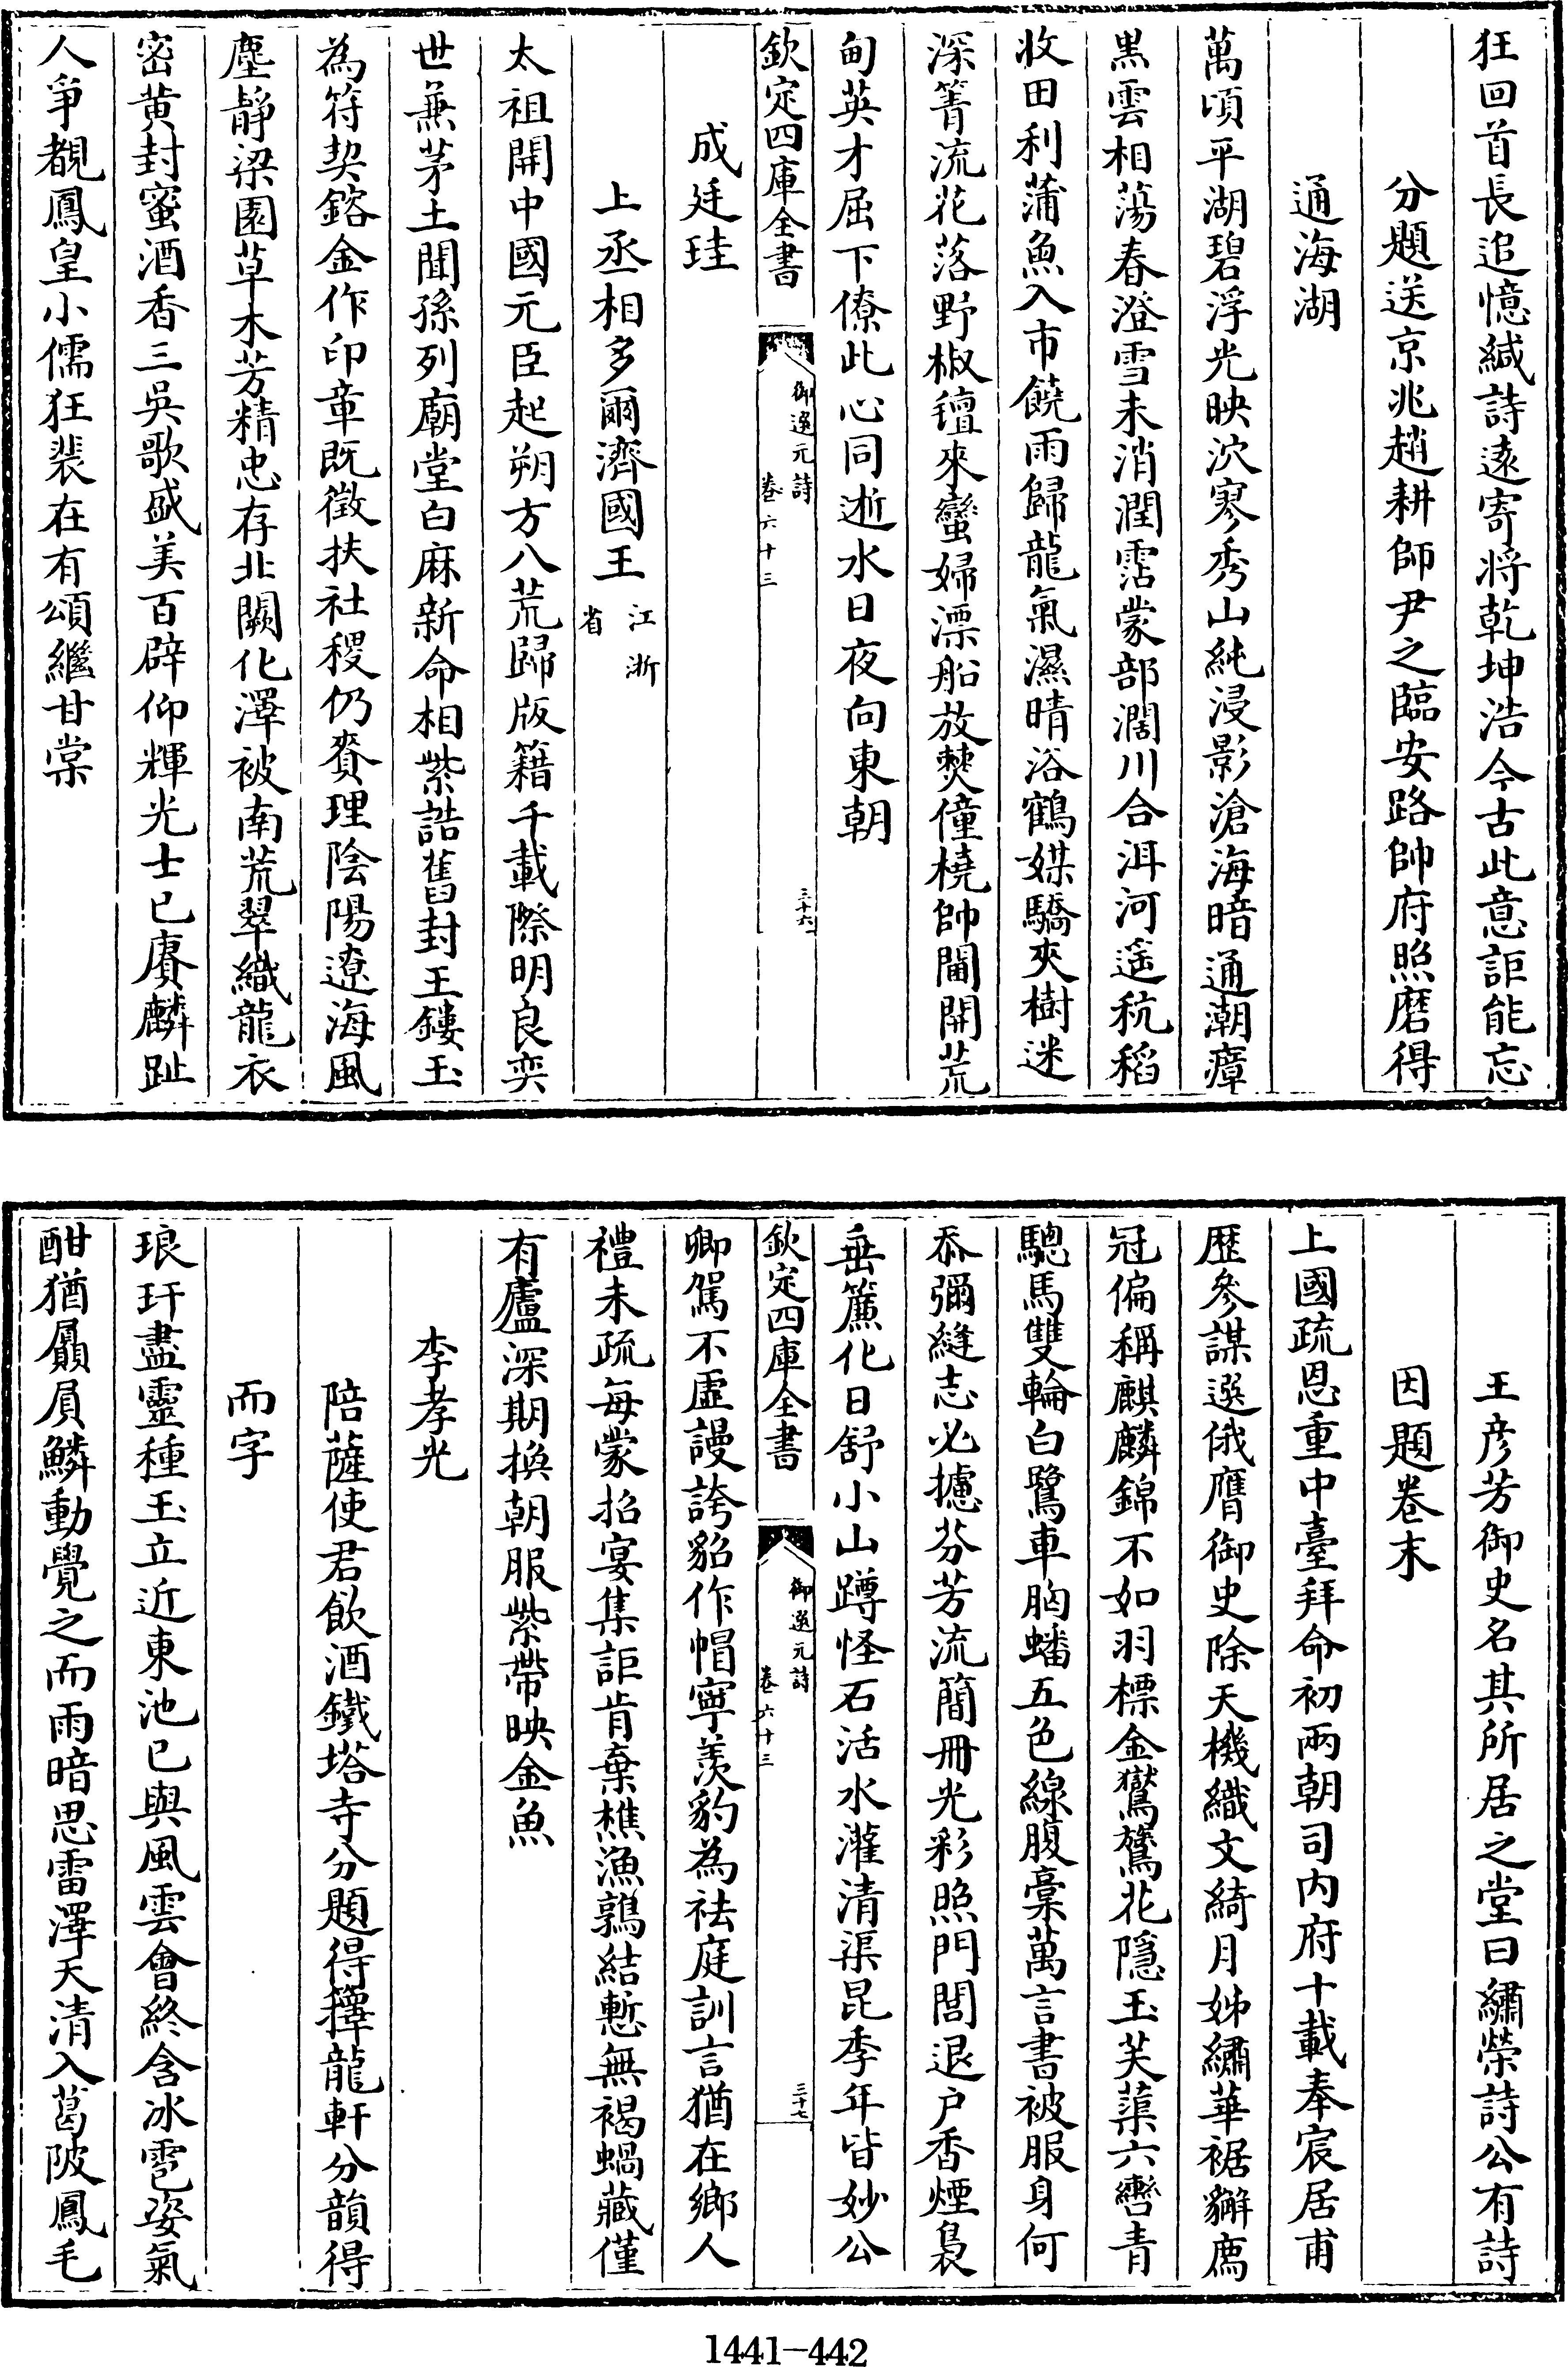 狂回首長追憶緘詩遠寄將乾坤浩今古此意詎能忘
分題送京兆趙耕師尹之臨安路帥府照磨得
通海湖
萬頃平湖碧浮光映泬寥秀山純浸影滄海暗通潮瘴
黒雲相蕩春澄雪未消潤霑蒙部濶川合洱河遥秔稻
收田利蒲魚入市饒雨歸龍氣濕晴浴鶴媒驕夾樹迷
深箐流花落野椒氊來蠻婦漂船放僰僮橈帥閫開荒
甸英才屈下僚此心同逝水日夜向東朝
欽定四庫全書
御選元詩
卷六十三
三十六
成廷珪
上丞相多爾濟國王江浙省
太祖開中國元臣起朔方八荒歸版籍千載際明良奕
世兼茅土聞孫列廟堂白麻新命相紫誥舊封王鏤玉
為符契鎔金作印章既徵扶社稷仍賚理陰陽遼海風
塵靜梁園草木芳精忠存北闕化澤被南荒翠織龍衣
密黄封蜜酒香三吳歌盛美百辟仰輝光士已賡麟趾
人爭覩鳳皇小儒狂裴在有頌繼甘棠
王彦芳御史名其所居之堂曰繡榮詩公有詩
因題卷末
上國疏恩重中臺拜命初兩朝司内府十載奉宸居甫
歴參謀選俄膺御史除天機織文綺月姊繡華裾獬廌
冠偏稱麒麟錦不如羽標金鸑鷟花隱玉芙蕖六轡青
驄馬雙輪白鷺車胸蟠五色線腹槖萬言書被服身何
忝彌縫志必攄芬芳流簡冊光彩照門閭退户香煙裊
垂簾化日舒小山蹲怪石活水灌清渠昆季年皆妙公
欽定四庫全書
御選元詩
卷六十三
三十七
卿駕不虚謾誇貂作帽寧羨豹為祛庭訓言猶在鄉人
禮未疏每蒙招宴集詎肯棄樵漁鶉結慙無褐蝸藏僅
有廬深期換朝服紫帶映金魚
李孝光
陪薩使君飲酒鐵塔寺分題得籜龍軒分韻得
而字
琅玕盡靈種玉立近東池已與風雲會終含冰雹姿氣
酣猶贔屓鱗動覺之而雨暗思雷澤天清入葛陂鳳毛
1441-442